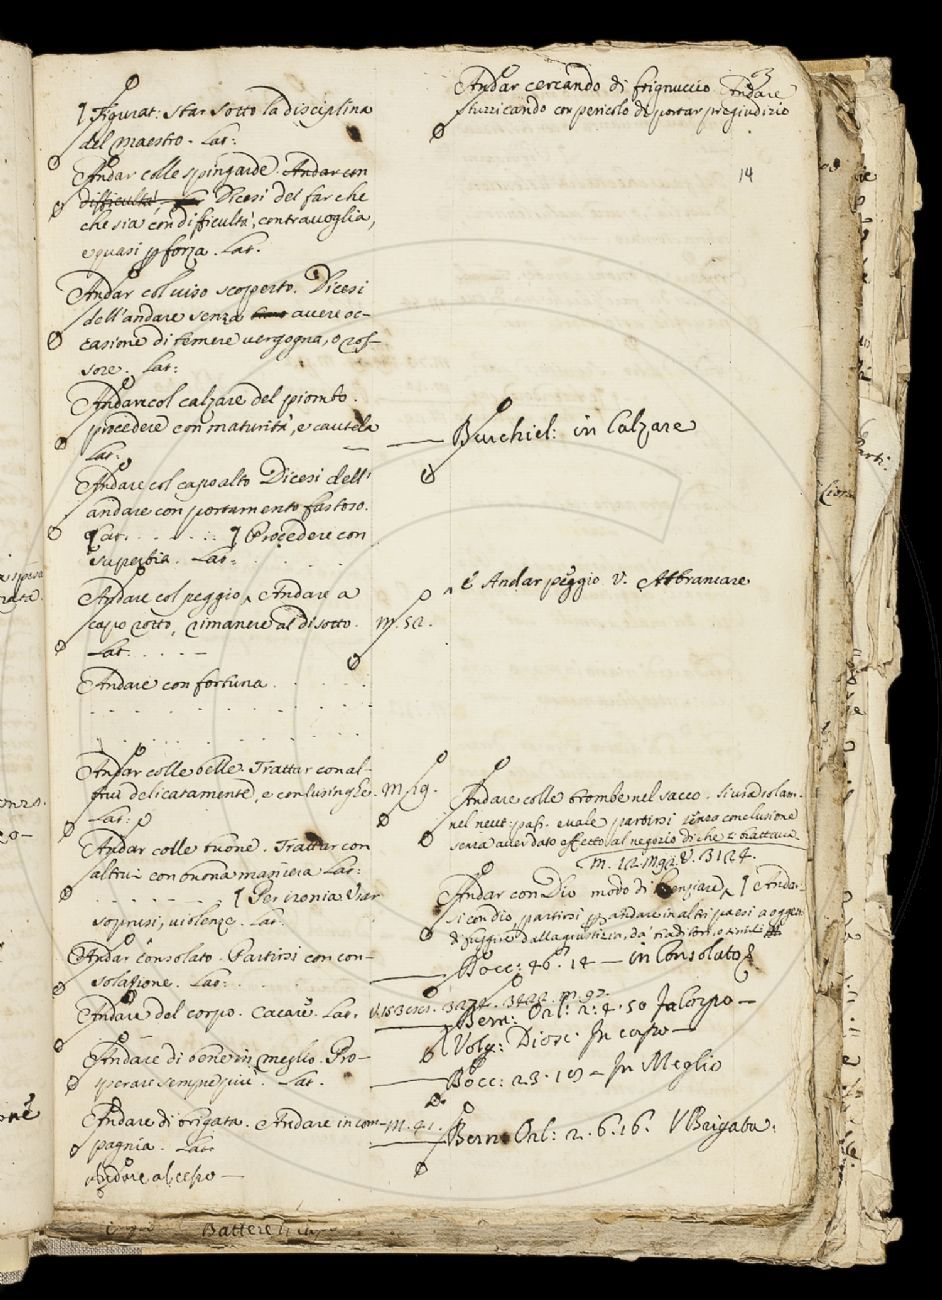 ¶ Figurat. Star sotto la disciplina
del Maestro. Lat:
Andar colle spingarde. Andar con
difficultà. Dicesi del far che
che sia con difficultà, contravoglia,
e quasi p forza. Lat.
Andar col viso scoperto. Dicesi
dell'andare senza avere oc-
casione di temere vergogna, o ros-
sore. Lat:
Andare col calzare del piombo.
procedere con maturità, e cautela
Lat:
Andare col capo alto Dicesi dell'
andare con portamento fastoso.
Lat. . . . . . . ¶ Procedere con
superbia. Lat: . . . .
Andare col peggio ^ Andare a
capo rotto, rimanere al disotto. M. 52.
Lat. . . . . –
Andare con fortuna . . . . .
Andar colle belle. Trattar con al-
trui delicatamente, e con lusinghe. M. 19.
Lat:
Andar colle buone. Trattar con
altrui con buona maniera Lat:
. . . . . . . . ¶ Per ironia Usar
soprusi, violenze. Lat:
Andar consolato. Partirsi con con-
solazione. Lat: . . . .
Andare del corpo. Cacare. Lat.
Andare di bene in meglio. Pro-
sperare sempre più. Lat.
Andare di brigata. Andare in com- M. 41.
pagnia. Lat.
Andare al cesso –
Andar cercando di frignuccio Andare
stuzzicando con pericolo di portar pregiudizio
3
14
Burchiel: in Calzare
^ è Andar peggio V. Abbrancare
Andare colle trombe nel sacco.
nel neut. pass. e vale partirsi senza conclusione
senza aver dato effetto al negozio di che si trattava
Andar con Dio modo di ¶ Andar-
si con dio, partirsi p andare in altri paesi
di fuggire dalla giustizia, da'
Bocc: 46. 14 – in Consolato
3274. 3422. M. 92.
Bern: Orl: 2. 4. 50 In Corpo –
Volg: Diosc: In corpo –
Bocc: 23. 19 – In Meglio
Bern: Orl: 2. 6. 16. V Brigata.
Battere